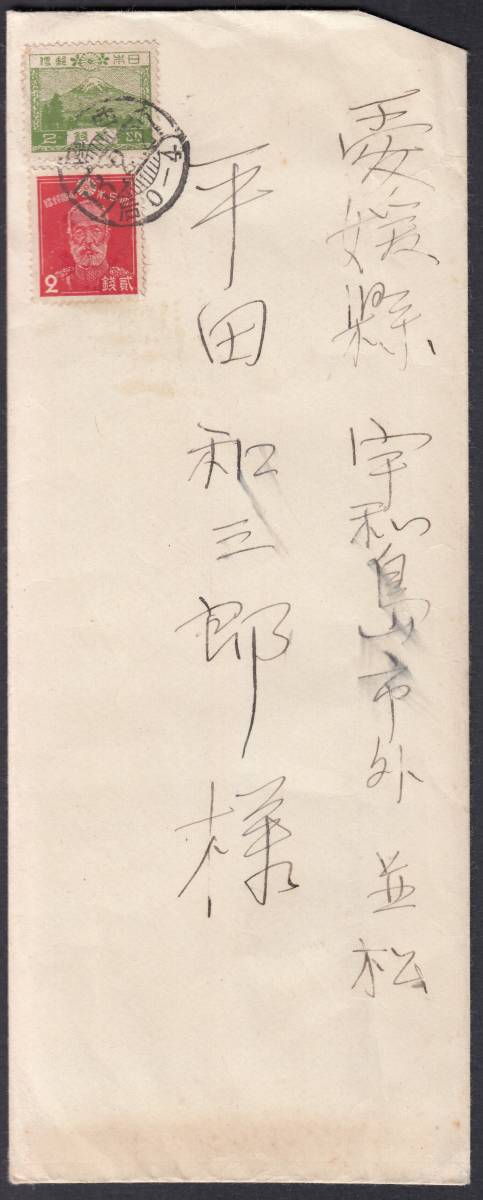 愛媛縣 宇和島市外 並松
平田和三郎様
日本郵便
四銭
2 貳錢